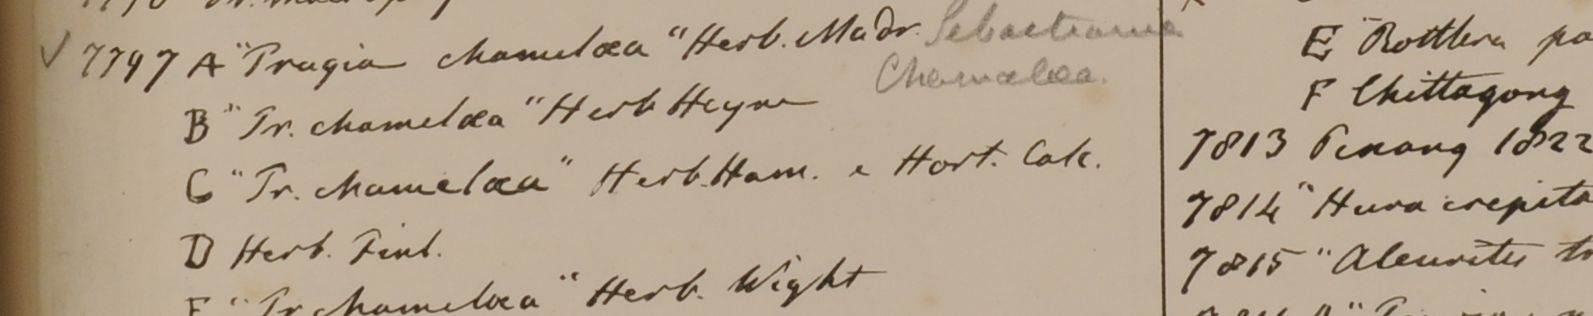 ✓ 7797 A "Tragia chamelæa" Herb. Madr. Sebastiania
Chamælea.
B "Tr. chamelæa" Herb Heyne
C "Tr. chamelæa" Herb. Ham. e Hort. Calc.
D Herb. Finl.
E "Tr chamelæa" Herb. Wight
E "Rottlera
F Chittagong
7813 Penang 1822
7814 "Hura crepita
7815 "Aleurites tr